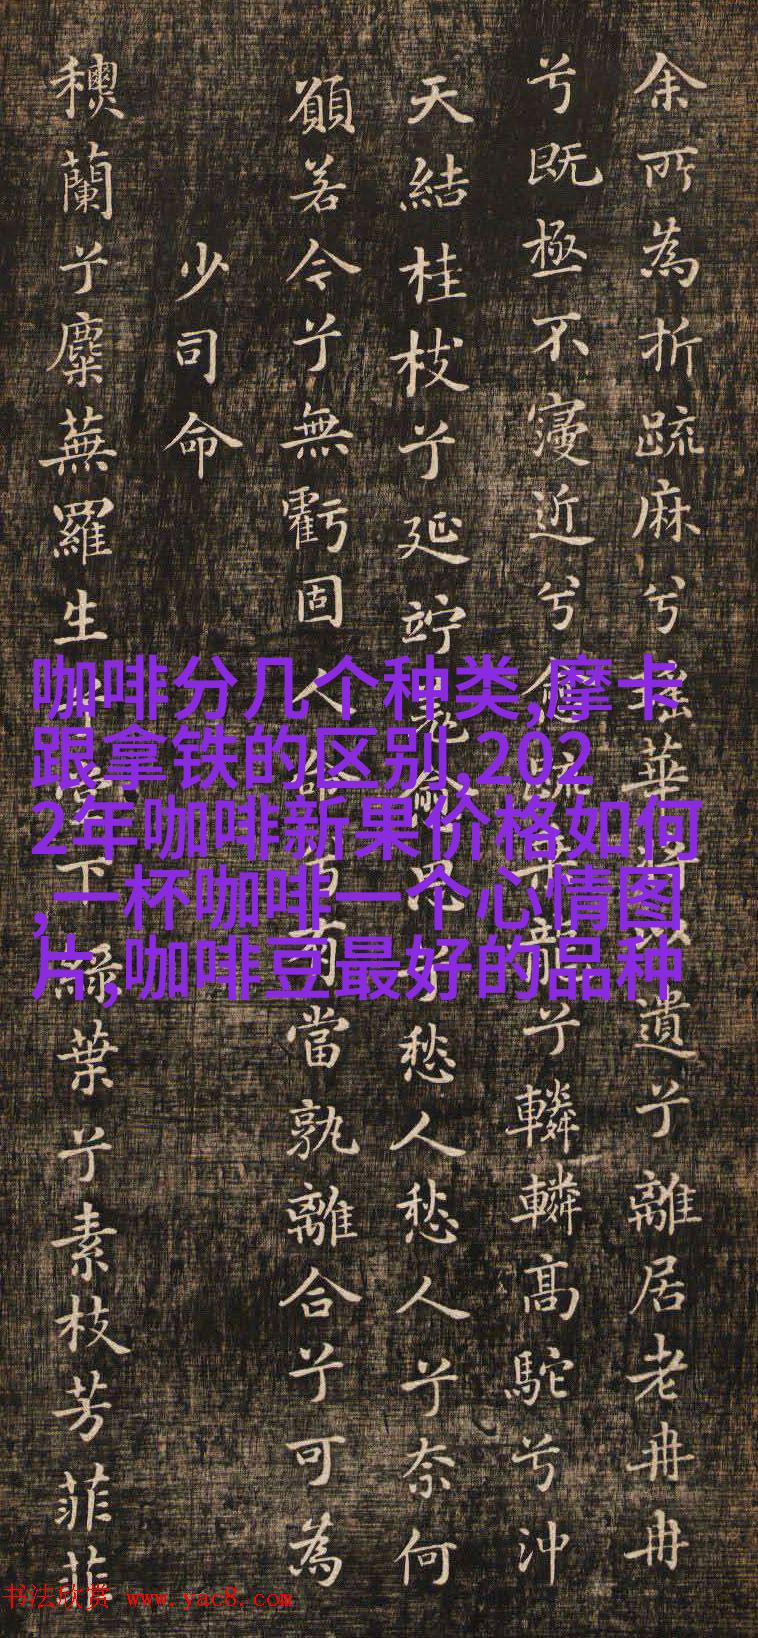 余所為折疏麻兮瑶華将以遺兮離居老冉冉
兮既極不寖近兮愈疏乘龍兮轔轔高駝兮沖
天結桂枝兮延竚羌愈思兮愁人愁人兮奈何
願若今兮無虧固人命有當孰離合兮可為
少司命
蘭兮麋蕪羅生兮堂下綠葉兮素枝芳菲菲
咖啡分几个种类,摩卡
跟拿铁的区别,202
2年咖啡新果价格如何
,一杯咖啡一个心情图
片,咖啡豆最好的品种
书法欣赏 www.yac8.com